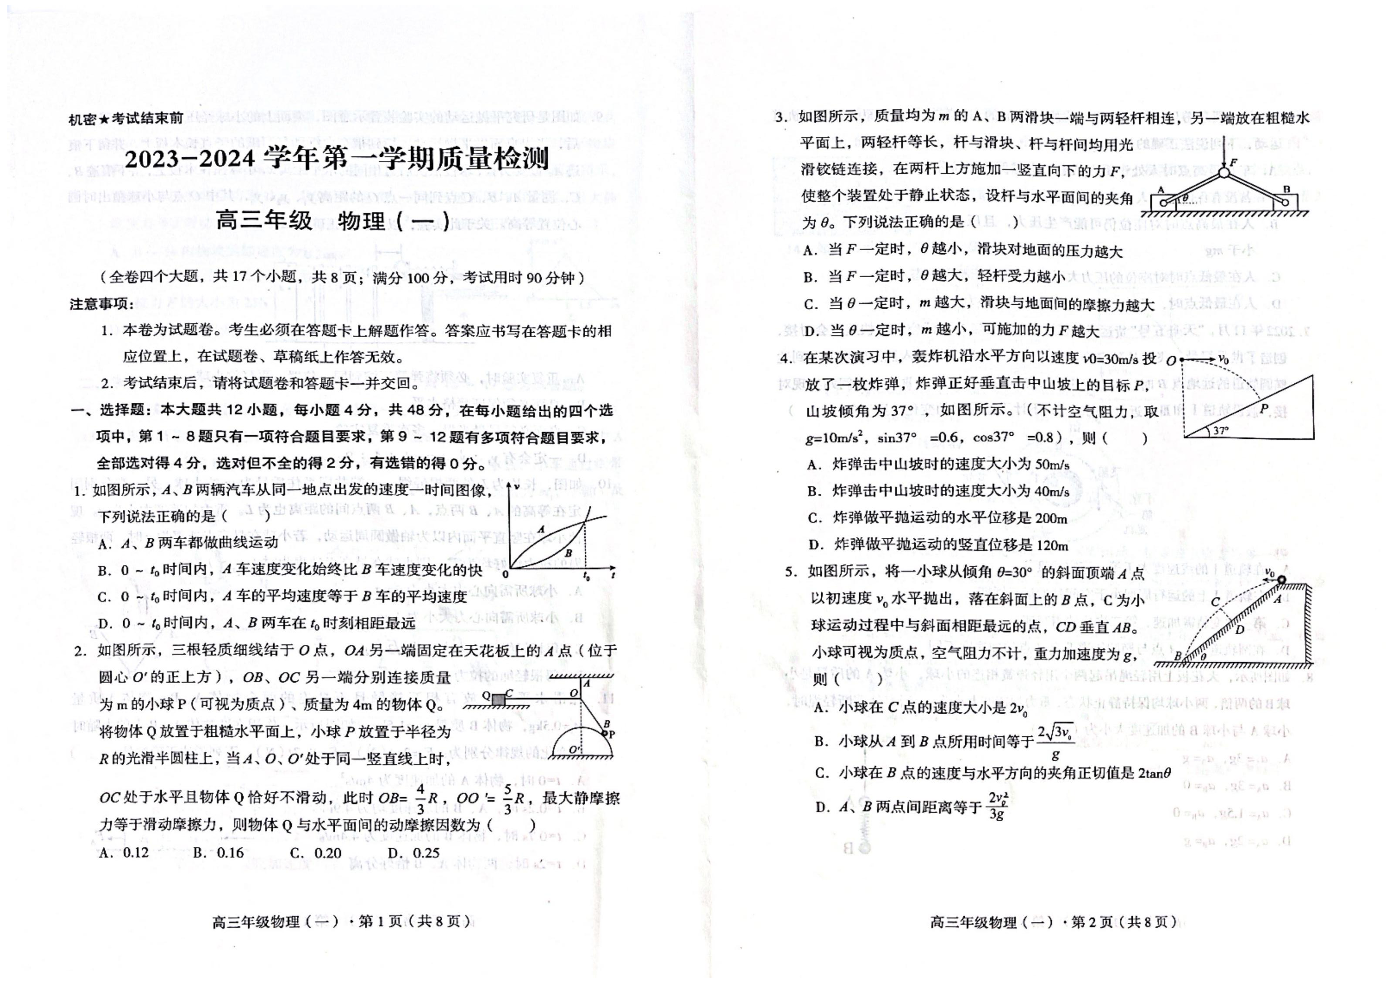 机密★考试结束前
2023-2024 学年第一学期质量检测
高三年级 物理(一)
(全卷四个大题，共 17 个小题，共 8 页；满分 100 分，考试用时 90 分钟)
注意事项：
1. 本卷为试题卷。考生必须在答题卡上解题作答。答案应书写在答题卡的相
应位置上，在试题卷、草稿纸上作答无效。
2. 考试结束后，请将试题卷和答题卡一并交回。
一、选择题：本大题共 12 小题，每小题 4 分，共 48 分，在每小题给出的四个选
项中，第 1 ~ 8 题只有一项符合题目要求，第 9 ~ 12 题有多项符合题目要求，
全部选对得 4 分，选对但不全的得 2 分，有选错的得 0 分。
1. 如图所示，A、B 两辆汽车从同一地点出发的速度—时间图像，
下列说法正确的是( )
A. A、B 两车都做曲线运动
B. 0 ~ t₀ 时间内，A 车速度变化始终比 B 车速度变化的快
C. 0 ~ t₀ 时间内，A 车的平均速度等于 B 车的平均速度
D. 0 ~ t₀ 时间内，A、B 两车在 t₀ 时刻相距最远
v
A
B
0
t₀
t
2. 如图所示，三根轻质细线结于 O 点，OA 另一端固定在天花板上的 A 点(位于
圆心 O′ 的正上方)，OB、OC 另一端分别连接质量
为 m 的小球 P(可视为质点)、质量为 4m 的物体 Q。
将物体 Q 放置于粗糙水平面上，小球 P 放置于半径为
R 的光滑半圆柱上，当 A、O、O′ 处于同一竖直线上时，
OC 处于水平且物体 Q 恰好不滑动，此时 OB= 4/3 R，OO′= 5/3 R，最大静摩擦
力等于滑动摩擦力，则物体 Q 与水平面间的动摩擦因数为( )
A. 0.12 B. 0.16 C. 0.20 D. 0.25
A
Q C O
B
P
O′
高三年级物理(一)·第 1 页(共 8 页)
3. 如图所示，质量均为 m 的 A、B 两滑块一端与两轻杆相连，另一端放在粗糙水
平面上，两轻杆等长，杆与滑块、杆与杆间均用光
滑铰链连接，在两杆上方施加一竖直向下的力 F，
使整个装置处于静止状态，设杆与水平面间的夹角
为 θ。下列说法正确的是( )
A. 当 F 一定时，θ 越小，滑块对地面的压力越大
B. 当 F 一定时，θ 越大，轻杆受力越小
C. 当 θ 一定时，m 越大，滑块与地面间的摩擦力越大
D. 当 θ 一定时，m 越小，可施加的力 F 越大
F
A
θ
B
4. 在某次演习中，轰炸机沿水平方向以速度 v0=30m/s 投
放了一枚炸弹，炸弹正好垂直击中山坡上的目标 P，
山坡倾角为 37°，如图所示。(不计空气阻力，取
g=10m/s²，sin37° =0.6，cos37° =0.8)，则( )
A. 炸弹击中山坡时的速度大小为 50m/s
B. 炸弹击中山坡时的速度大小为 40m/s
C. 炸弹做平抛运动的水平位移是 200m
D. 炸弹做平抛运动的竖直位移是 120m
O
v₀
P
37°
5. 如图所示，将一小球从倾角 θ=30° 的斜面顶端 A 点
以初速度 v₀ 水平抛出，落在斜面上的 B 点，C 为小
球运动过程中与斜面相距最远的点，CD 垂直 AB。
小球可视为质点，空气阻力不计，重力加速度为 g，
则( )
A. 小球在 C 点的速度大小是 2v₀
B. 小球从 A 到 B 点所用时间等于 2√3v₀/g
C. 小球在 B 点的速度与水平方向的夹角正切值是 2tanθ
D. A、B 两点间距离等于 2v₀²/3g
v₀
A
C
D
B
θ
高三年级物理(一)·第 2 页(共 8 页)